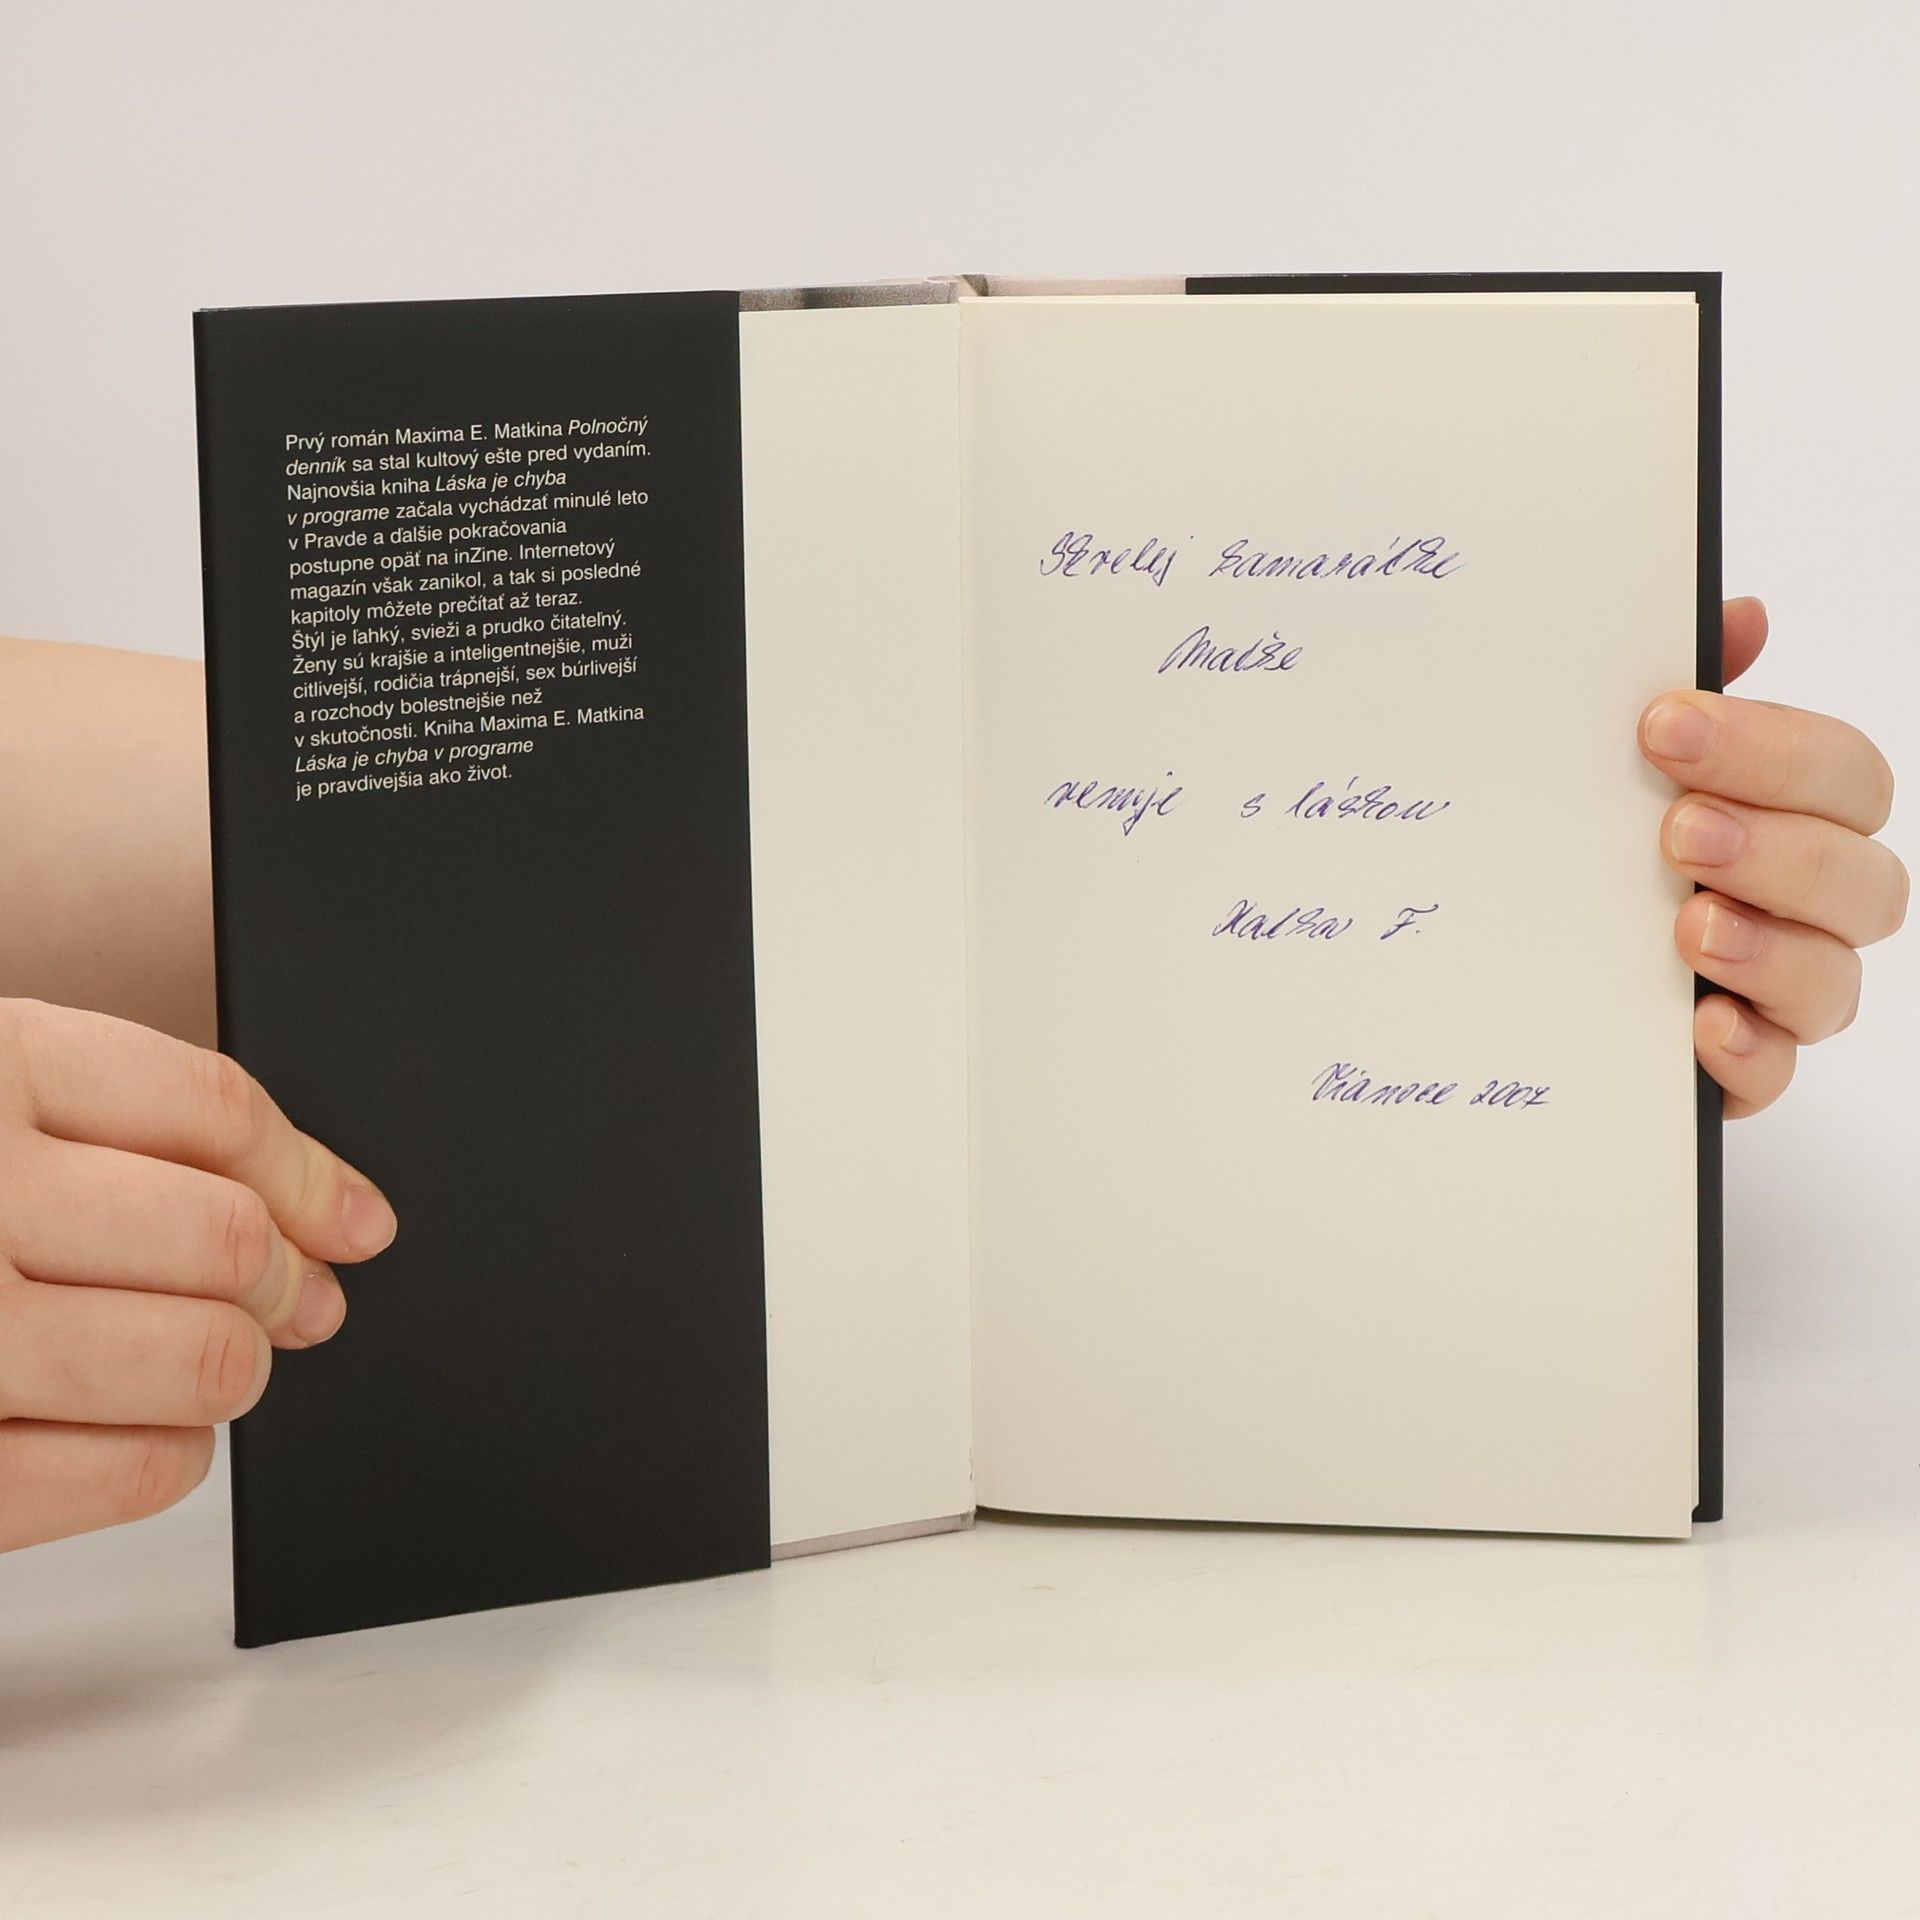 Prvý román Maxima E. Matkina Polnočný
denník sa stal kultový ešte pred vydaním.
Najnovšia kniha Láska je chyba
v programe začala vychádzať minulé leto
v Pravde a ďalšie pokračovania
postupne opäť na inZine. Internetový
magazín však zanikol, a tak si posledné
kapitoly môžete prečítať až teraz.
Štýl je ľahký, svieži a prudko čitateľný.
Ženy sú krajšie a inteligentnejšie, muži
citlivejší, rodičia trápnejší, sex búrlivejší
a rozchody bolestnejšie než
v skutočnosti. Kniha Maxima E. Matkina
Láska je chyba v programe
je pravdivejšia ako život.
Skvelej kamarátke
venuje s láskou
F.
Vianoce 2007